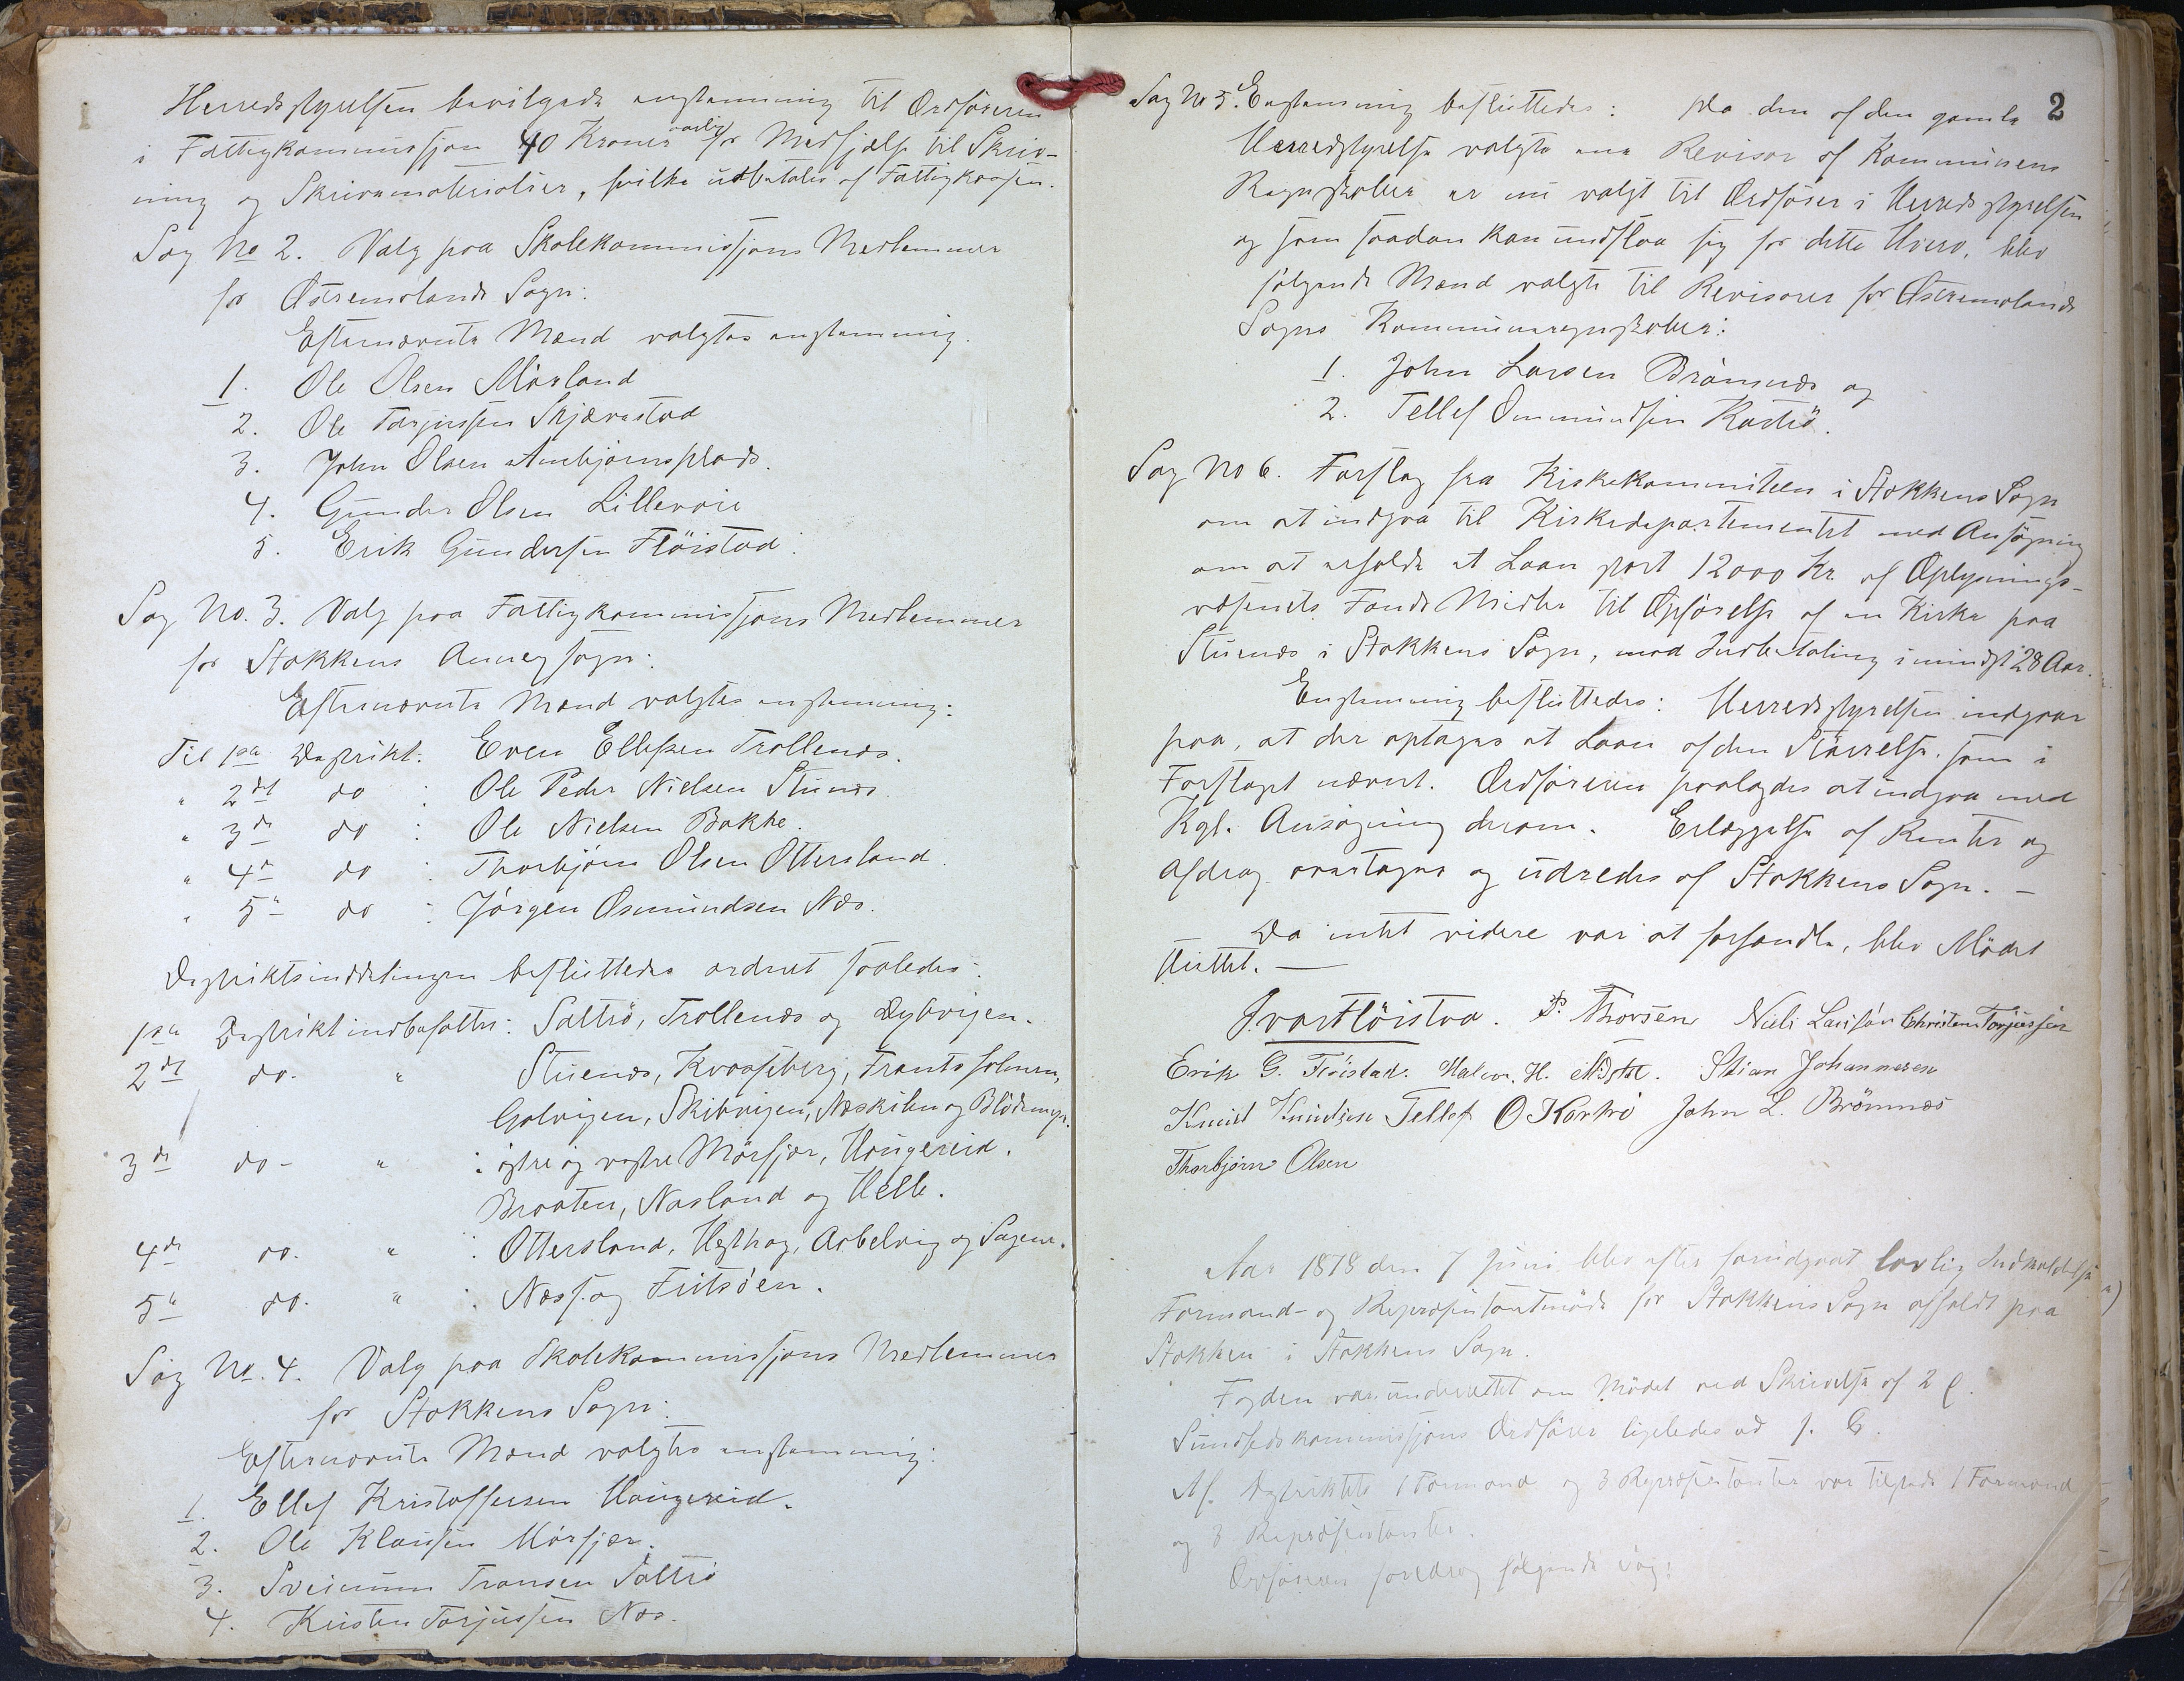 Herredsstyrelsen bevilgede enstemmig til Ordføreren
i Fattigkommissjon 40 Kroner aarlig for Medhjælp til Skriv-
ning og Skrivematerialier, hvilke udbetales af Fattigkassen.
Sag No 2. Valg paa Skolekommissjons Medlemmer
for Østremolands Sogn:
Efternævnte Mænd valgtes enstemmig.
1. Ole Olsen Mørland
2. Ole Tarjussen Skjærestad
3. John Olsen Ambjørnsplads.
4. Gunder Olsen Lillevoie
5. Erik Gundersen Fløistad.
Sag No. 3. Valg paa Fattigkommissjons Medlemmer
for Stokkens Annexsogn:
Efternævnte Mænd valgtes enstemmig:
Til 1ste Destrikt: Even Ellefsen Trollenæs.
" 2det do : Ole Peder Nielsen Stuenæs.
" 3de do : Ole Nielsen Bakke.
" 4de do : Thorbjørn Olsen Ottersland.
" 5te do : Jørgen Osmundsen Næs.
Destriktsinddelingen besluttedes ordnet saaledes:
1ste Destrikt indbefatter: Saltrø, Trollenæs og Dybvigen.
2det do. " Stuenæs, Kvaaseberg, Frantsholmen,
Golvigen, Skibvigen, Næskilen og Blødemyr.
3de do - " : østre og vestre Mørfjær, Haugereid,
Braaten, Næsland og Helle.
4de do. " : Ottersland, Hesthag, Arbelvig og Sagene.
5te do. " : Næs og Fiitsøen.
Sag No. 4. Valg paa Skolekommissjons Medlemmer
for Stokkens Sogn:
Efternævnte Mænd valgtes enstemmig:
1. Ellef Kristoffersen Haugereid.
2. Ole Klausen Mørfjær.
3. Sveinum Transen Saltrø
4. Kristen Torjussen Næs.
2
Sag No 5. Enstemmig besluttedes: Da den af den gamle
Herredsstyrelse valgte ene Revisor af Kommunens
Regnskaber er nu valgt til Ordfører i Herredsstyrelsen
og som saadan kan undslaa sig for dette Hverv, blev
følgende Mænd valgte til Revisorer for Østremolands
Sogns Kommuneregnskaber:
1. John Larsen Brømnæs og
2. Tellef Ommundsen Kastrø.
Sag No 6. Forslag fra Kirkekommiteen i Stokkens Sogn
om at indgaa til Kirkedepartementet med Ansøgning
om at erholde et Laan stort 12000 Kr. af Oplysnings-
væsenets Fonds Midler til Opførelse af en Kirke paa
Stuenæs i Stokkens Sogn, med Indbetaling i mindst 28 Aar.
Enstemmig besluttedes: Herredsstyrelsen indgaar
paa, at der optages et Laan af den Størrelse som i
Forslaget nævnt. Ordføreren paalagdes at indgaa med
Kgl. Ansøgning derom. Erlæggelse af Renter og
Afdrag overtages og udredes af Stokkens Sogn. -
Da intet videre var at forhandle, blev Mødet
sluttet. -
Ivar Fløistad. P. Thorsen Niels Larsen Christen Torjussen
Erik G. Fløistad. Halvor. H. Stian Johannesen
Knud Knudsen Tellef O Kastrø John L. Brömnæs
Thorbjørn Olsen
Aar 1878 den 7 Juni blev efter forudgaat lovlig Indkaldelse
Formand- og Repræsentantmøde for Stokkens Sogn afholdt paa
Stokken i Stokkens Sogn.
Fogden var underrettet om Mødet ved Skrivelse af 2
Sundhedskommissjons Ordfører ligeledes
Af Destriktets 1 Formand og 3 Repræsentanter var tilstede 1 Formand
og 3 Repræsentanter.
Ordføreren foredrog følgende Sag: